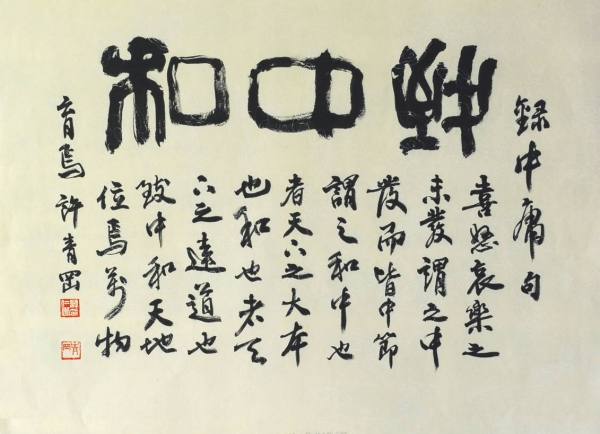 致中和
錄中庸句
喜怒哀樂之
未發謂之中
發而皆中節
謂之和中也
者天下之大本
也和也者天
下之達道也
致中和天地
位焉萬物
育焉 許青岡